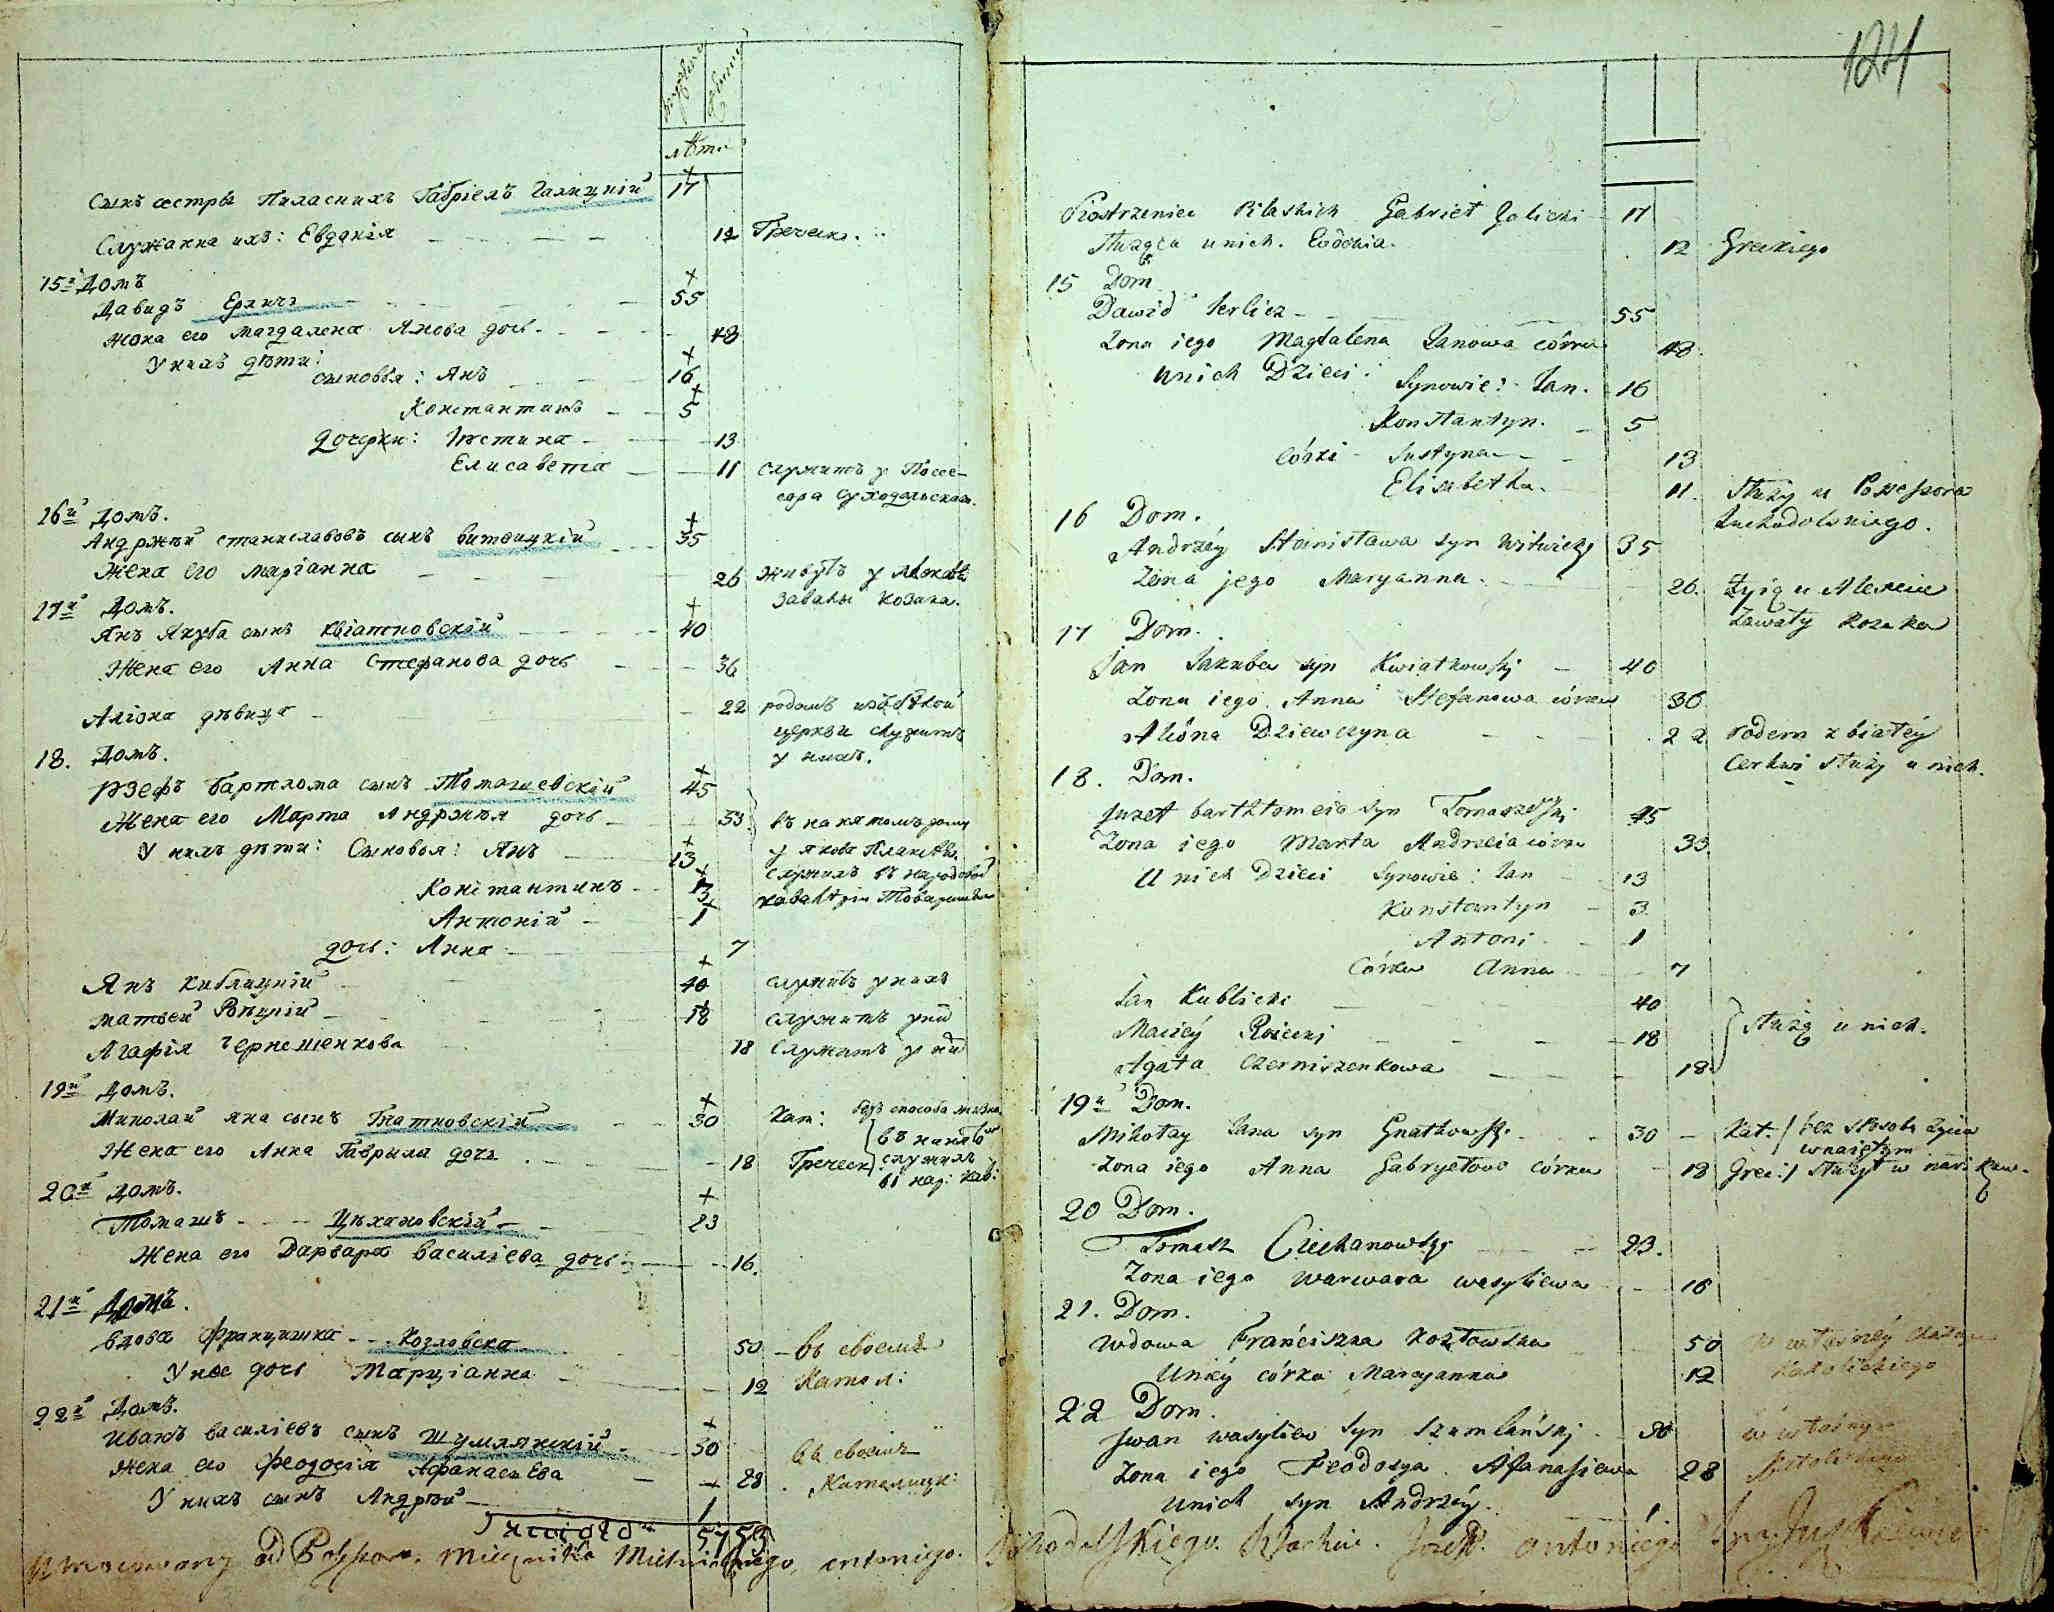 мужескъ женск
лѣта
Сынъ сестры Пиласкихъ Габріелъ Галицкій 17
Служанка ихъ: Евдокія 12 Греческ:
15й Домъ
Давидъ Ерличъ 55
Жена его Магдалена Янова дочь 48
У нихъ дѣти:
сыновья: Янъ 16
Константинъ 5
дочерки: Юстина 13
Елисавета 11 служитъ у Поссе-
сора Суходольскаго.
16й Домъ.
Андржей Станиславовъ сынъ Витвицкій 35
Жена его Маріанна 26 живутъ у
Завалы Козака.
17й Домъ.
Янъ Якуба сынъ Квіатковскій 40
Жена его Анна Стефанова дочь 36
Аліона дѣвица 22 родомъ изъ бѣлой
церкви служитъ
у нихъ.
18. Домъ.
Юзефъ Бартлома сынъ Томашевскій 45
Жена его Марта Андржея дочь 33 въ дому
У нихъ дѣти: Сыновья: Янъ 13 у Якова
Константинъ 3 служилъ въ народовой
Антоній 1 кавалеріи
дочь: Анна 7
Янъ Кублицкій 40 служитъ у нихъ
Матвей 18 служитъ у ни
Агафія Чернешенкова 18 служитъ у ни
19й Домъ.
Миколай Яна сынъ Гнатковскій 30 Кат: безъ способа жизни
Жена его Анна Габриля дочь 18 Греческ служилъ
въ нар: кав:
20й Домъ.
Томашъ Цѣхановскій 23
Жена его Варвара Василіева дочь 16.
21й Домъ.
Вдова Францишка Козловска 50 въ своемъ
У нее дочь Марціанна 12 Катол:
22й Домъ.
Иванъ Василіевъ сынъ Шумлянскій 30 въ своемъ
Жена его Феодосія Афанасьева 28 Католицк:
У нихъ сынъ Андрей 1
57 53
Umocowany od Possessora Antoniego
124
Siostrzeniec Pilaskich Gabriel Galicki 17
Służąca u nich. Eudokia. 12 Greckiego
15 Dom
Dawid Jerlicz 55
Żona iego Magdalena Janowa córka 48
U nich Dzieci: Synowie: Jan. 16
Konstantyn. 5
Córki Justyna 13
Elisabetha. 11. Służy u Possessora
Suchodolskiego.
16 Dom.
Andrzéy Stanisława syn Witwicky 35
Żona jego Maryanna 26. żyią u Alexieia
Zawały Kozaka
17 Dom.
Jan Jakuba syn Kwiatkowskj 40
Żona iego Anna Stefanowa córka 36
Alióna Dziewczyna 22 rodem z białéy
Cerkwi służy u nich.
18. Dom.
Juzef Barthłomeia syn Tomaszewskj 45
Żona iego Marta Andrzeia córka 33
U nich Dzieci Synowie: Jan 13
Konstantyn 3
Antoni. 1
Córka Anna 7
Jan Kublicki 40
Macięy 18 służą u nich.
Agata Czerniszenkowa 18
19й Dom.
Mikołay Jana syn Gnatkowski 30 Kat: bez sposobu życia
w naiętym
Żona iego Anna Gabryelowa córka 18 Grec: służył w nar: kaw.
20 Dom.
Tomasz Ciechanowski 23.
Żona iego Warwara Wasyliewa 16
21. Dom.
Wdowa Franciszka Kozłowska 50 w własnéy
U niéy córka Maryanna 12 Katolickiego
22 Dom.
Jwan Wasyliew syn Szumlańskj 30 w własnym
Żona iego Feodosya Afanasiewa 28 Katolickiego
U nich syn Andrzéy. 1